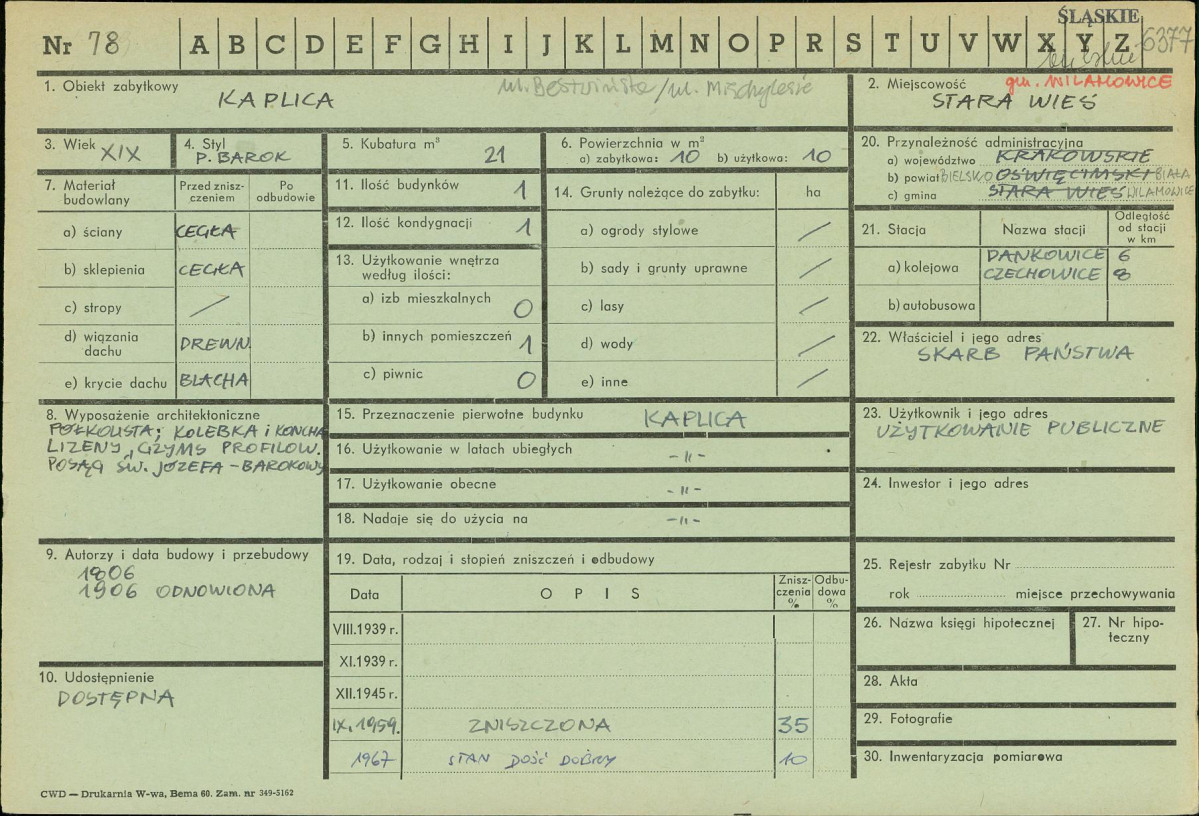 ŚLĄSKIE
Nr 78 A B C D E F G H I J K L M N O P R S T U V W X Y Z 6377
bielskie
1. Obiekt zabytkowy
KAPLICA ul. Bestwińska / ul.
2. Miejscowość gm. WILAMOWICE
STARA WIEŚ
3. Wiek XIX
4. Styl
P. BAROK
5. Kubatura m³
21
6. Powierzchnia w m²
a) zabytkowa: 10 b) użytkowa: 10
20. Przynależność administracyjna
a) województwo KRAKOWSKIE
b) powiat BIELSKO OŚWIĘCIMSKI BIAŁA
c) gmina STARA WIEŚ WILAMOWICE
7. Materiał budowlany
Przed znisz-
czeniem
Po
odbudowie
a) ściany CEGŁA
b) sklepienia CEGŁA
c) stropy /
d) wiązania
dachu DREWN.
e) krycie dachu BLACHA
11. Ilość budynków 1
12. Ilość kondygnacji 1
13. Użytkowanie wnętrza
według ilości:
a) izb mieszkalnych 0
b) innych pomieszczeń 1
c) piwnic 0
14. Grunty należące do zabytku: ha
a) ogrody stylowe /
b) sady i grunty uprawne /
c) lasy /
d) wody /
e) inne /
21. Stacja Nazwa stacji
Odległość
od stacji
w km
a) kolejowa DANKOWICE 6
CZECHOWICE 8
b) autobusowa
22. Właściciel i jego adres
SKARB PAŃSTWA
8. Wyposażenie architektoniczne
PÓŁKOLISTA; KOLEBKA i KONCHA
LIZENY, GZYMS PROFILOW.
POSĄG ŚW. JÓZEFA - BAROKOWY
15. Przeznaczenie pierwotne budynku KAPLICA
16. Użytkowanie w latach ubiegłych -"-
17. Użytkowanie obecne -"-
18. Nadaje się do użycia na -"-
23. Użytkownik i jego adres
UŻYTKOWANIE PUBLICZNE
24. Inwestor i jego adres
9. Autorzy i data budowy i przebudowy
1806
1906 ODNOWIONA
10. Udostępnienie
DOSTĘPNA
19. Data, rodzaj i stopień zniszczeń i odbudowy
Data OPIS
Znisz-
czenia
%
Odbu-
dowa
%
VIII.1939 r.
XI.1939 r.
XII.1945 r.
IX.1959. ZNISZCZONA 35
1967 STAN DOŚĆ DOBRY 10
25. Rejestr zabytku Nr
rok miejsce przechowywania
26. Nazwa księgi hipotecznej
27. Nr hipo-
teczny
28. Akta
29. Fotografie
30. Inwentaryzacja pomiarowa
CWD — Drukarnia W-wa, Bema 60. Zam. nr 349-5162